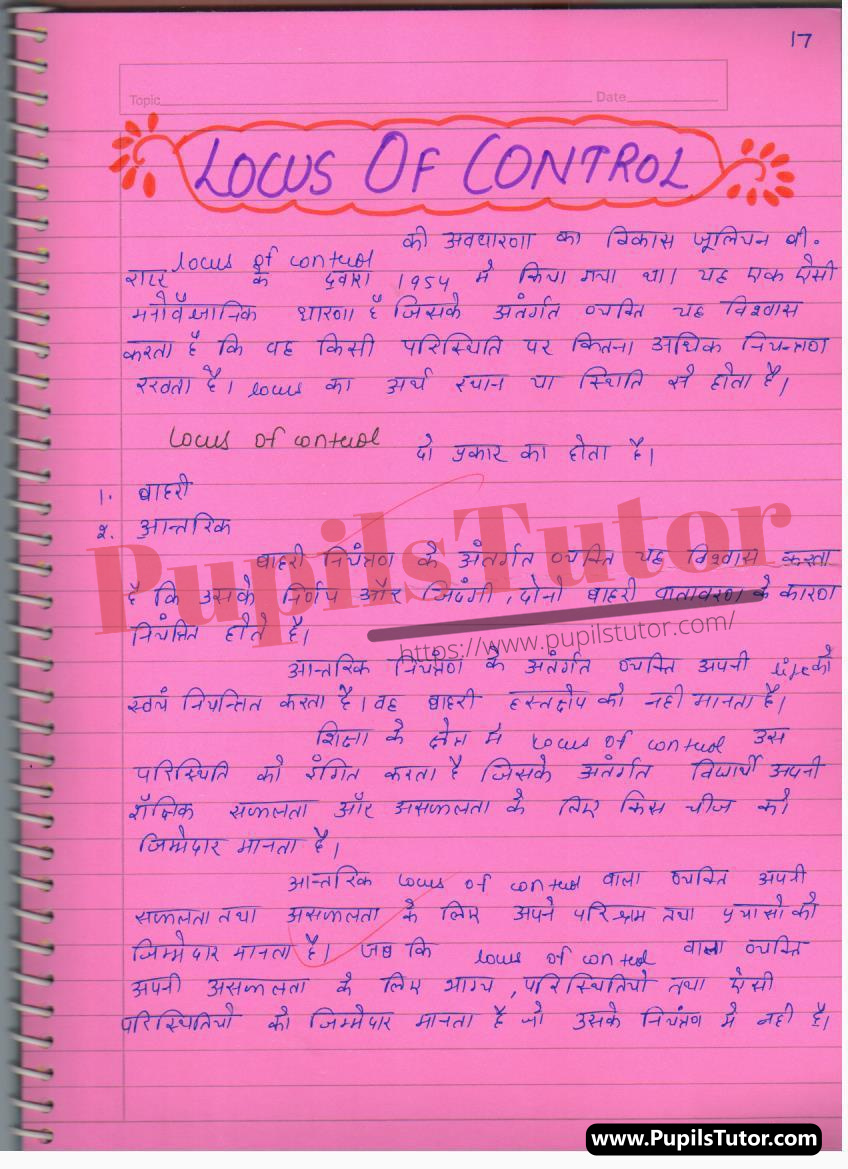 17
Topic
Date
LOCUS OF CONTROL
locus of control की अवधारणा का विकास जूलियन बी.
राटर के द्वारा 1954 में किया गया था। यह एक ऐसी
मनोवैज्ञानिक धारणा है जिसके अंतर्गत व्यक्ति यह विश्वास
करता है कि वह किसी परिस्थिति पर कितना अधिक नियन्त्रण
रखता है। locus का अर्थ स्थान या स्थिति से होता है।
Locus of control दो प्रकार का होता है।
1. बाहरी
2. आन्तरिक
PupilsTutor
बाहरी नियंत्रण के अंतर्गत व्यक्ति यह विश्वास करता
है कि उसके निर्णय और जिंदगी, दोनो बाहरी वातावरण के कारण
नियंत्रित होते है।
https://www.pupilstutor.com/
आन्तरिक नियंत्रण के अंतर्गत व्यक्ति अपनी life को
स्वयं नियन्त्रित करता है। वह बाहरी हस्तक्षेप को नही मानता है।
शिक्षा के क्षेत्र में Locus of control उस
परिस्थिति को इंगित करता है जिसके अंतर्गत विद्यार्थी अपनी
शैक्षिक सफलता और असफलता के लिए किस चीज को
जिम्मेदार मानता है।
आन्तरिक Locus of control वाला व्यक्ति अपनी
सफलता तथा असफलता के लिए अपने परिश्रम तथा प्रयासो को
जिम्मेदार मानता है। जब कि locus of control वाला व्यक्ति
अपनी असफलता के लिए भाग्य, परिस्थितियो तथा ऐसी
परिस्थितियो को जिम्मेदार मानता है जो उसके नियंत्रण मे नही है।
www.PupilsTutor.com